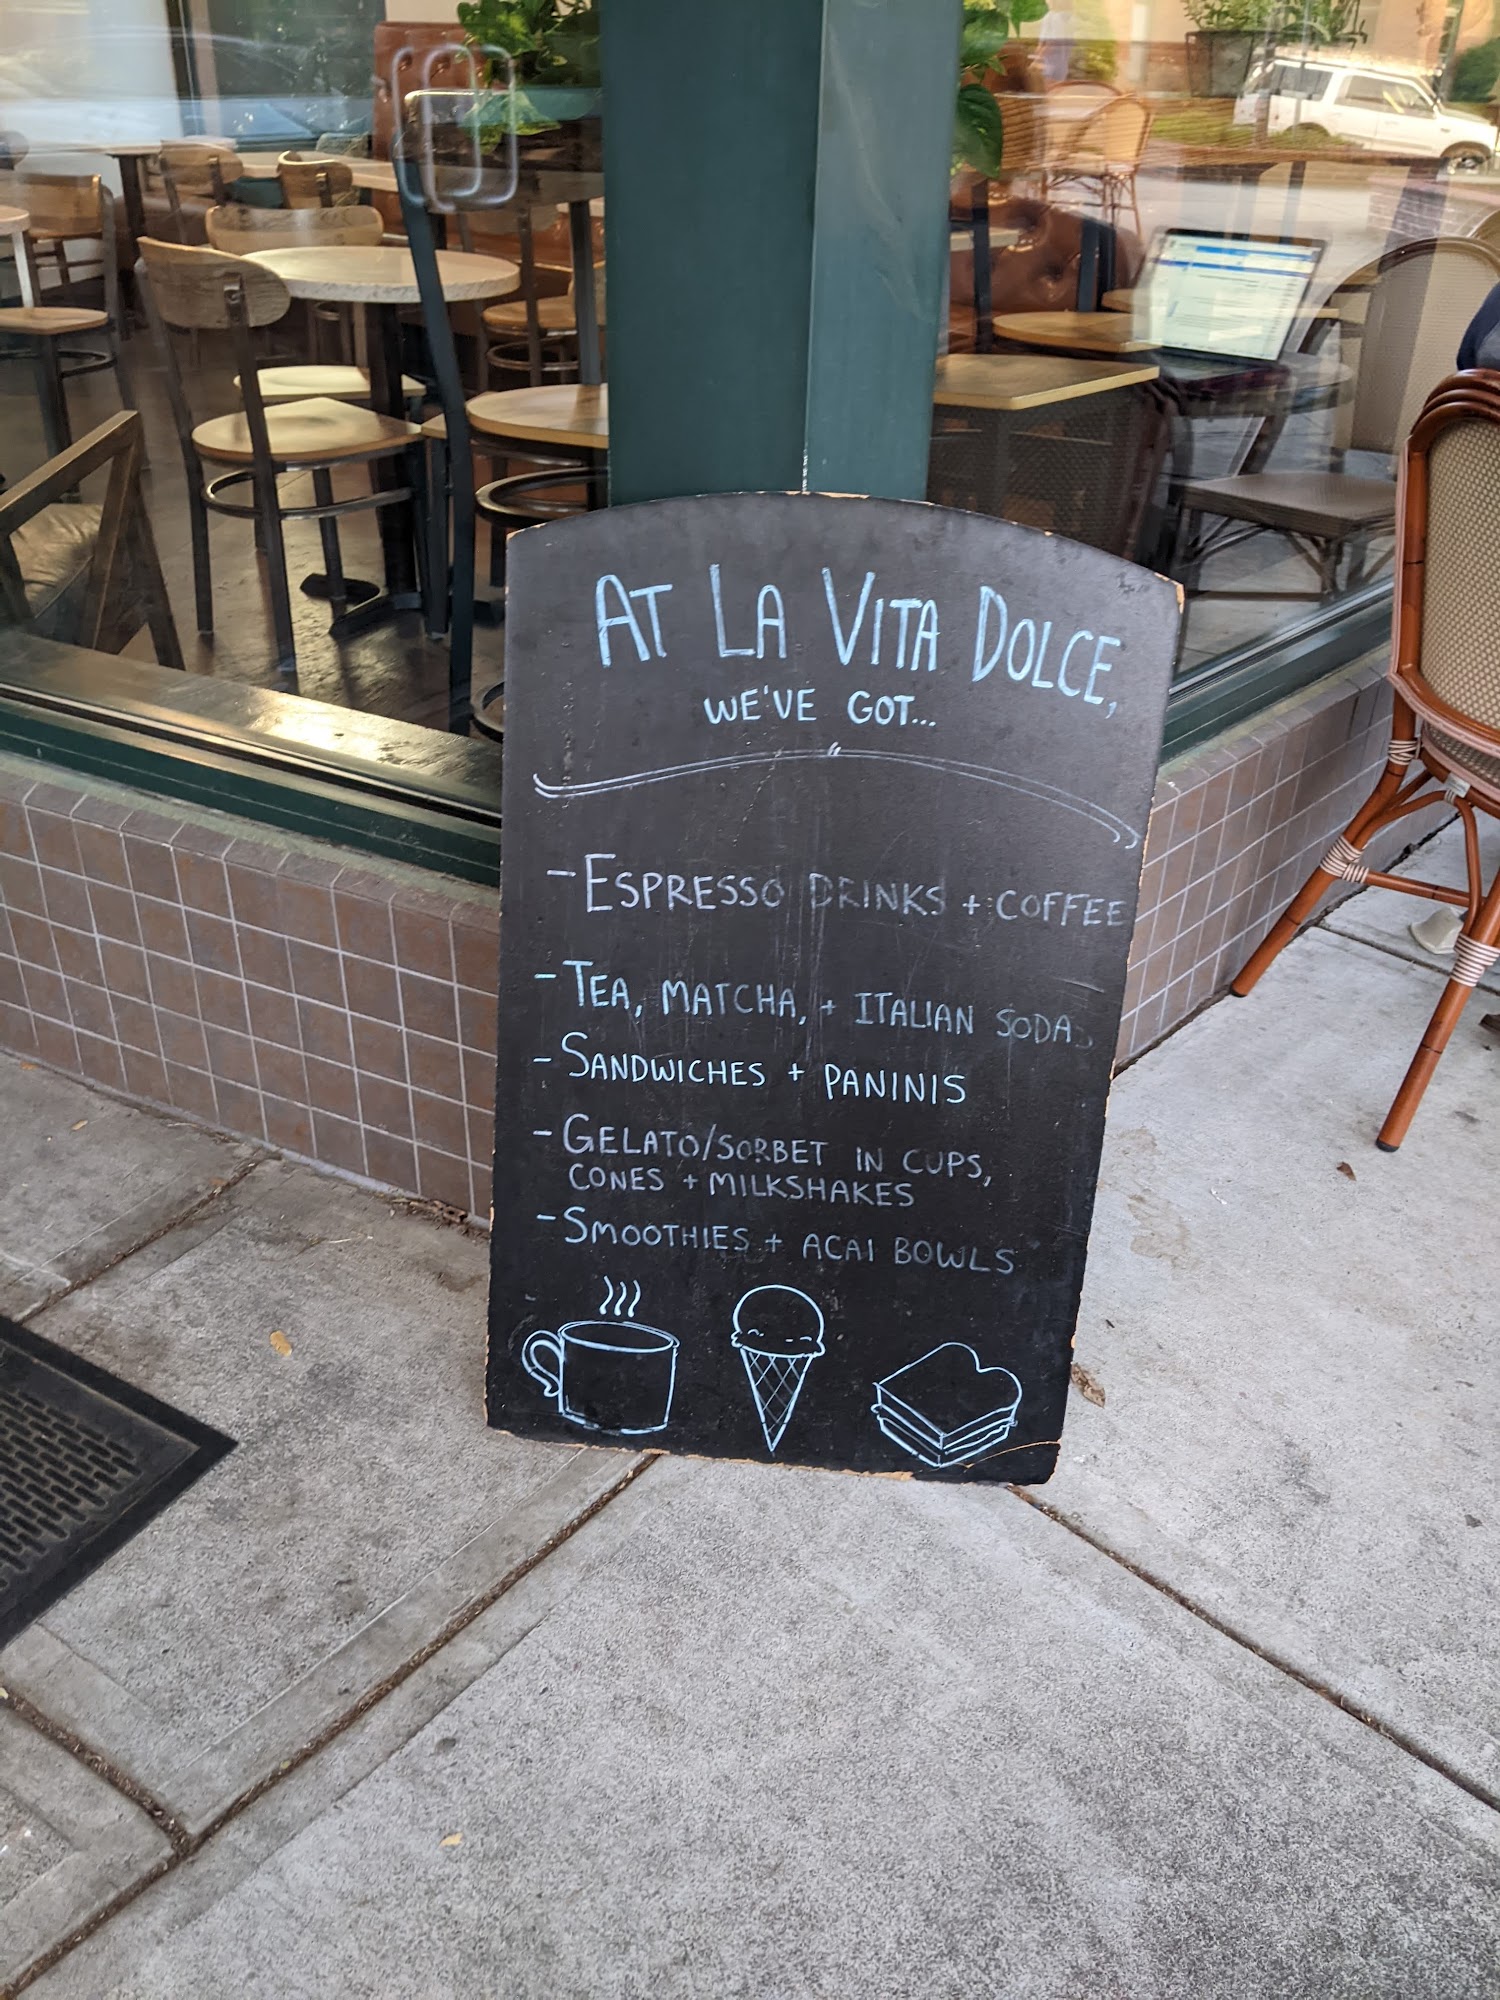 AT LA VITA DOLCE,
WE'VE GOT...
- ESPRESSO DRINKS + COFFEE
- TEA, MATCHA, + ITALIAN SODAS
- SANDWICHES + PANINIS
- GELATO/SORBET IN CUPS,
CONES + MILKSHAKES
- SMOOTHIES + ACAI BOWLS